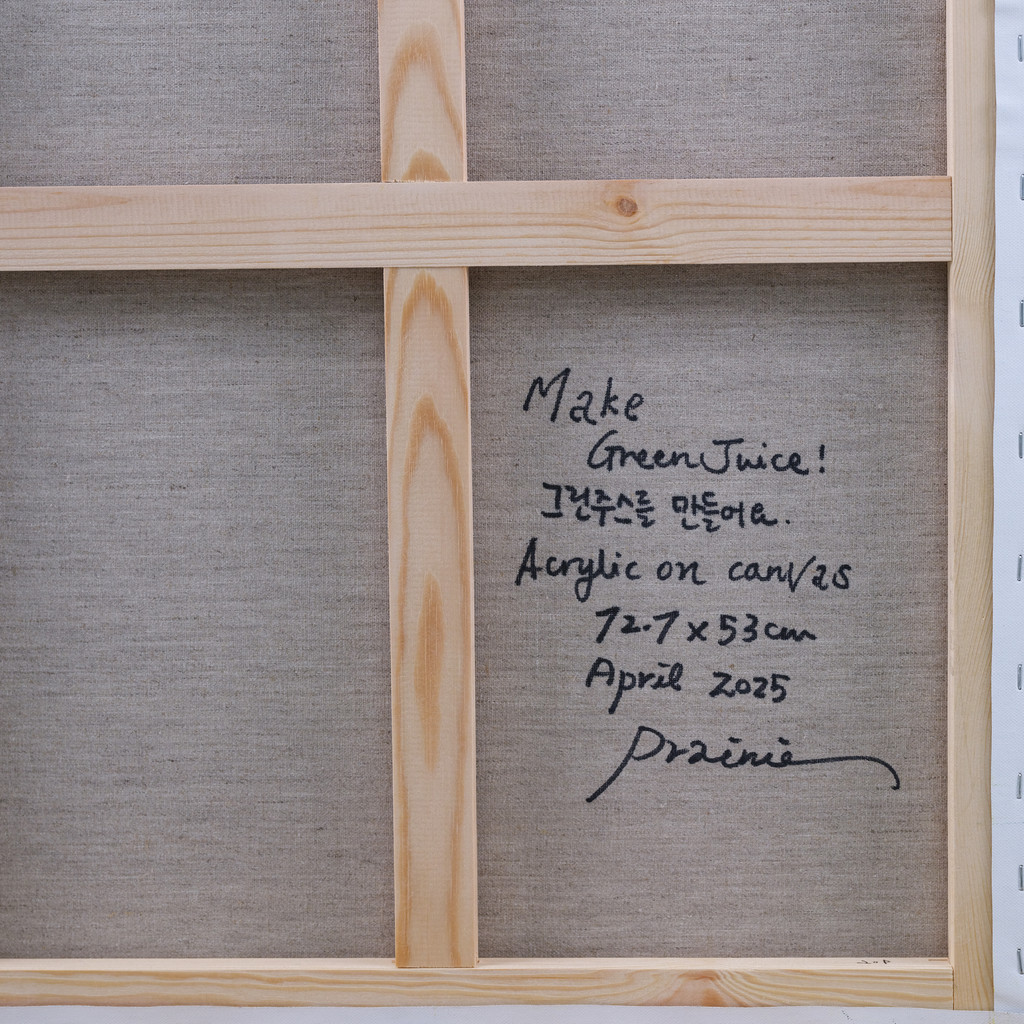 Make
Green Juice!
그린주스를 만들어요.
Acrylic on canvas
72.7 x 53 cm
April 2025
Prairie